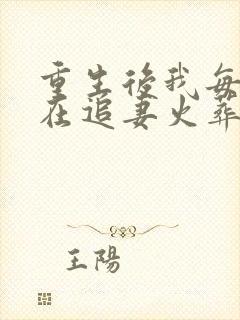 重生後我每
在追妻火葬
王陽